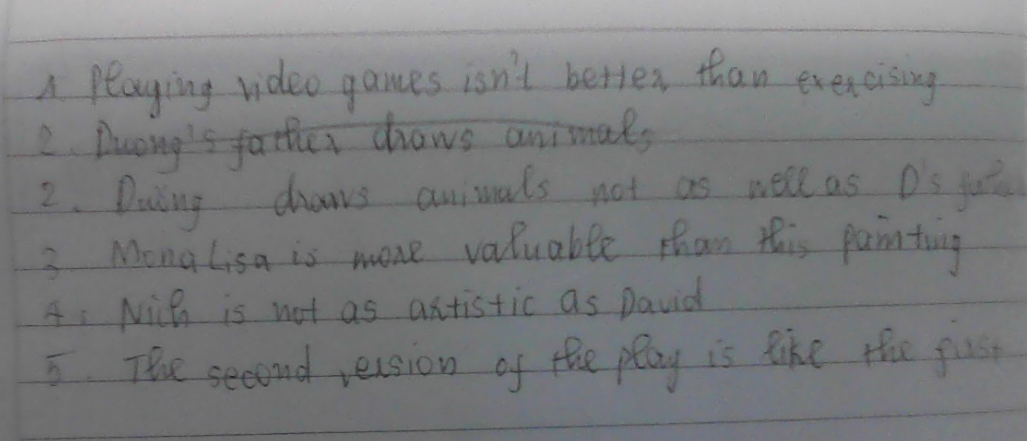 1. Playing video games isn't better than exercising
2. Duong's father draws animals
2. Duong draws animals not as well as D's
3 Mona Lisa is more valuable than this painting
4. Nick is not as artistic as David
5. The second version of the play is like the first